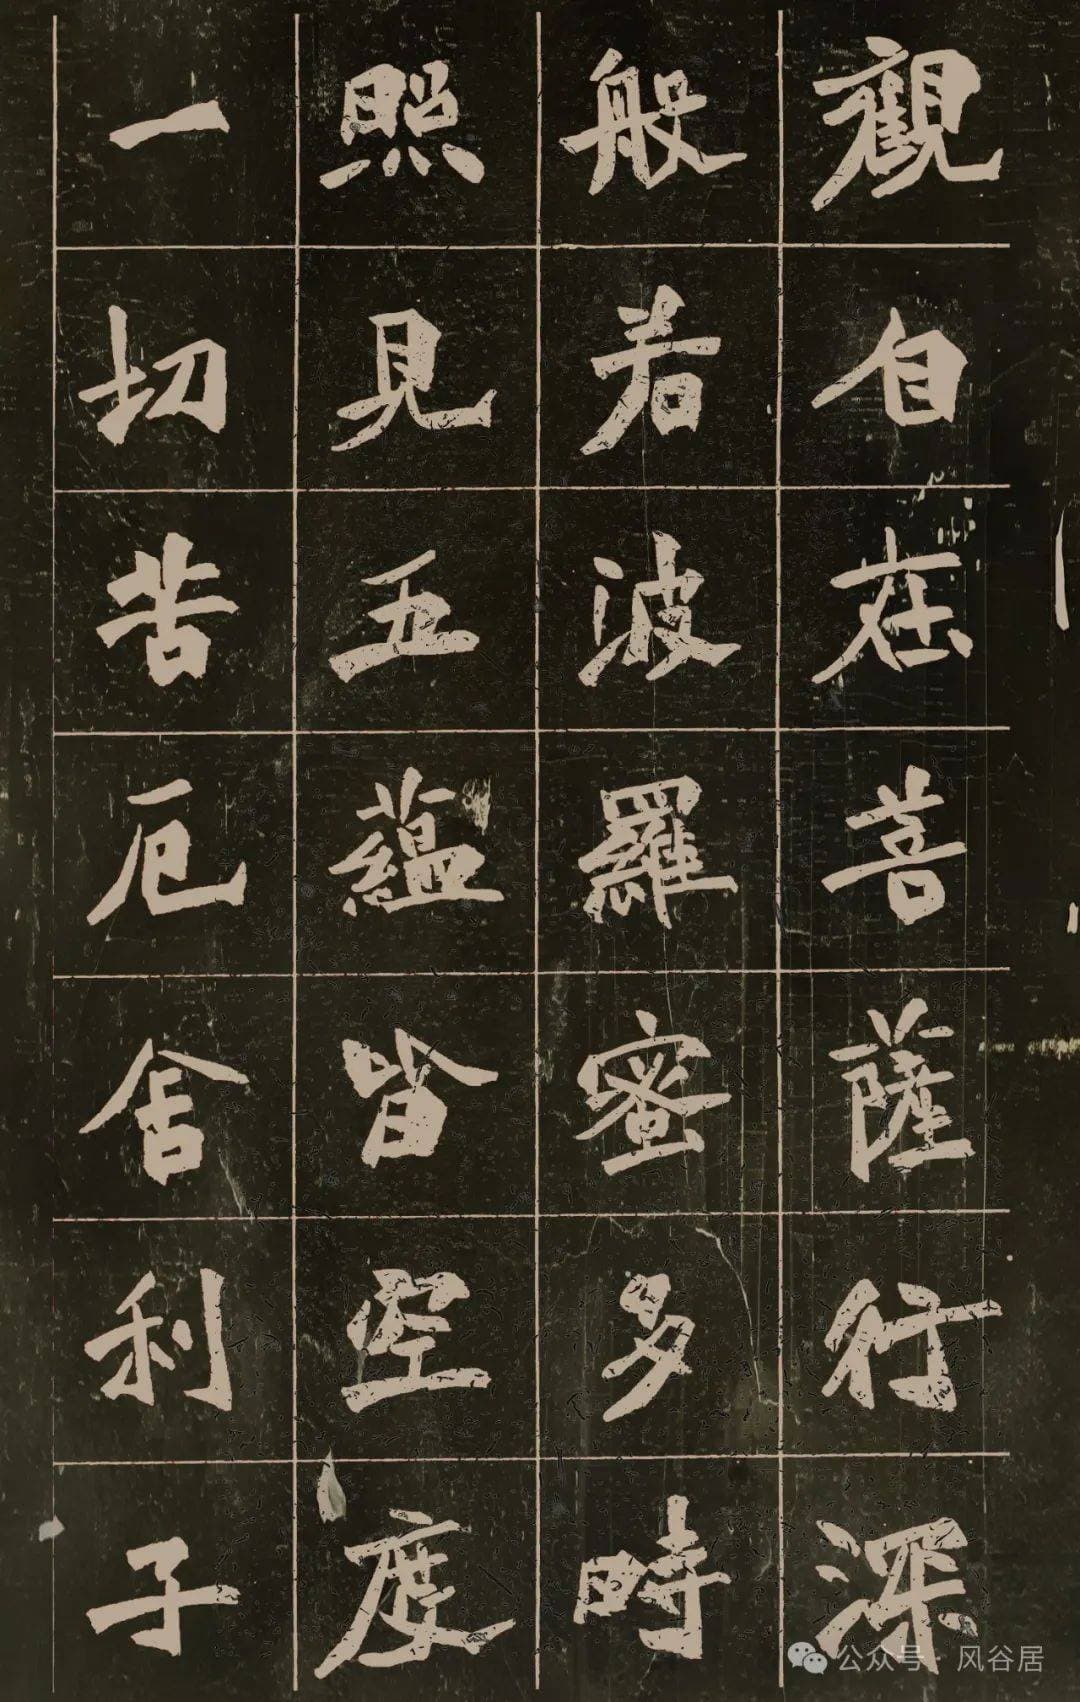 觀自在菩薩行深
般若波羅蜜多時
照見五蘊皆空度
一切苦厄舍利子
公众号·风谷居